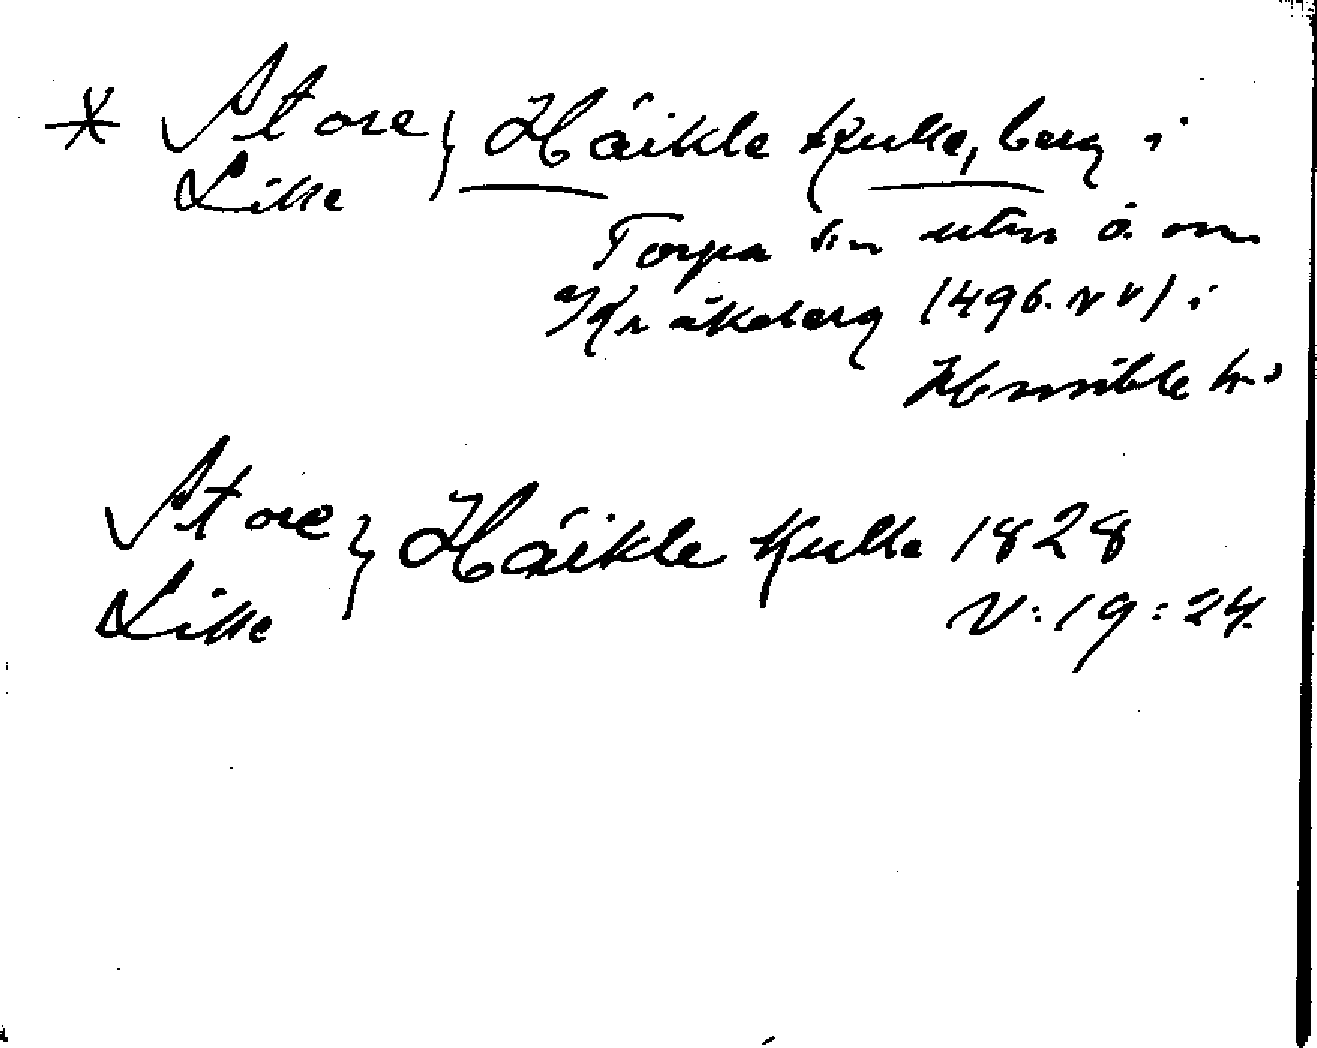 * Store } Häikle kulle, berg i
Lille
Torpa sn utm å. om
Kråkeberg (496. v v) i
hd
Store } Häikle Kulle 1828
Lille
V: 19: 24.